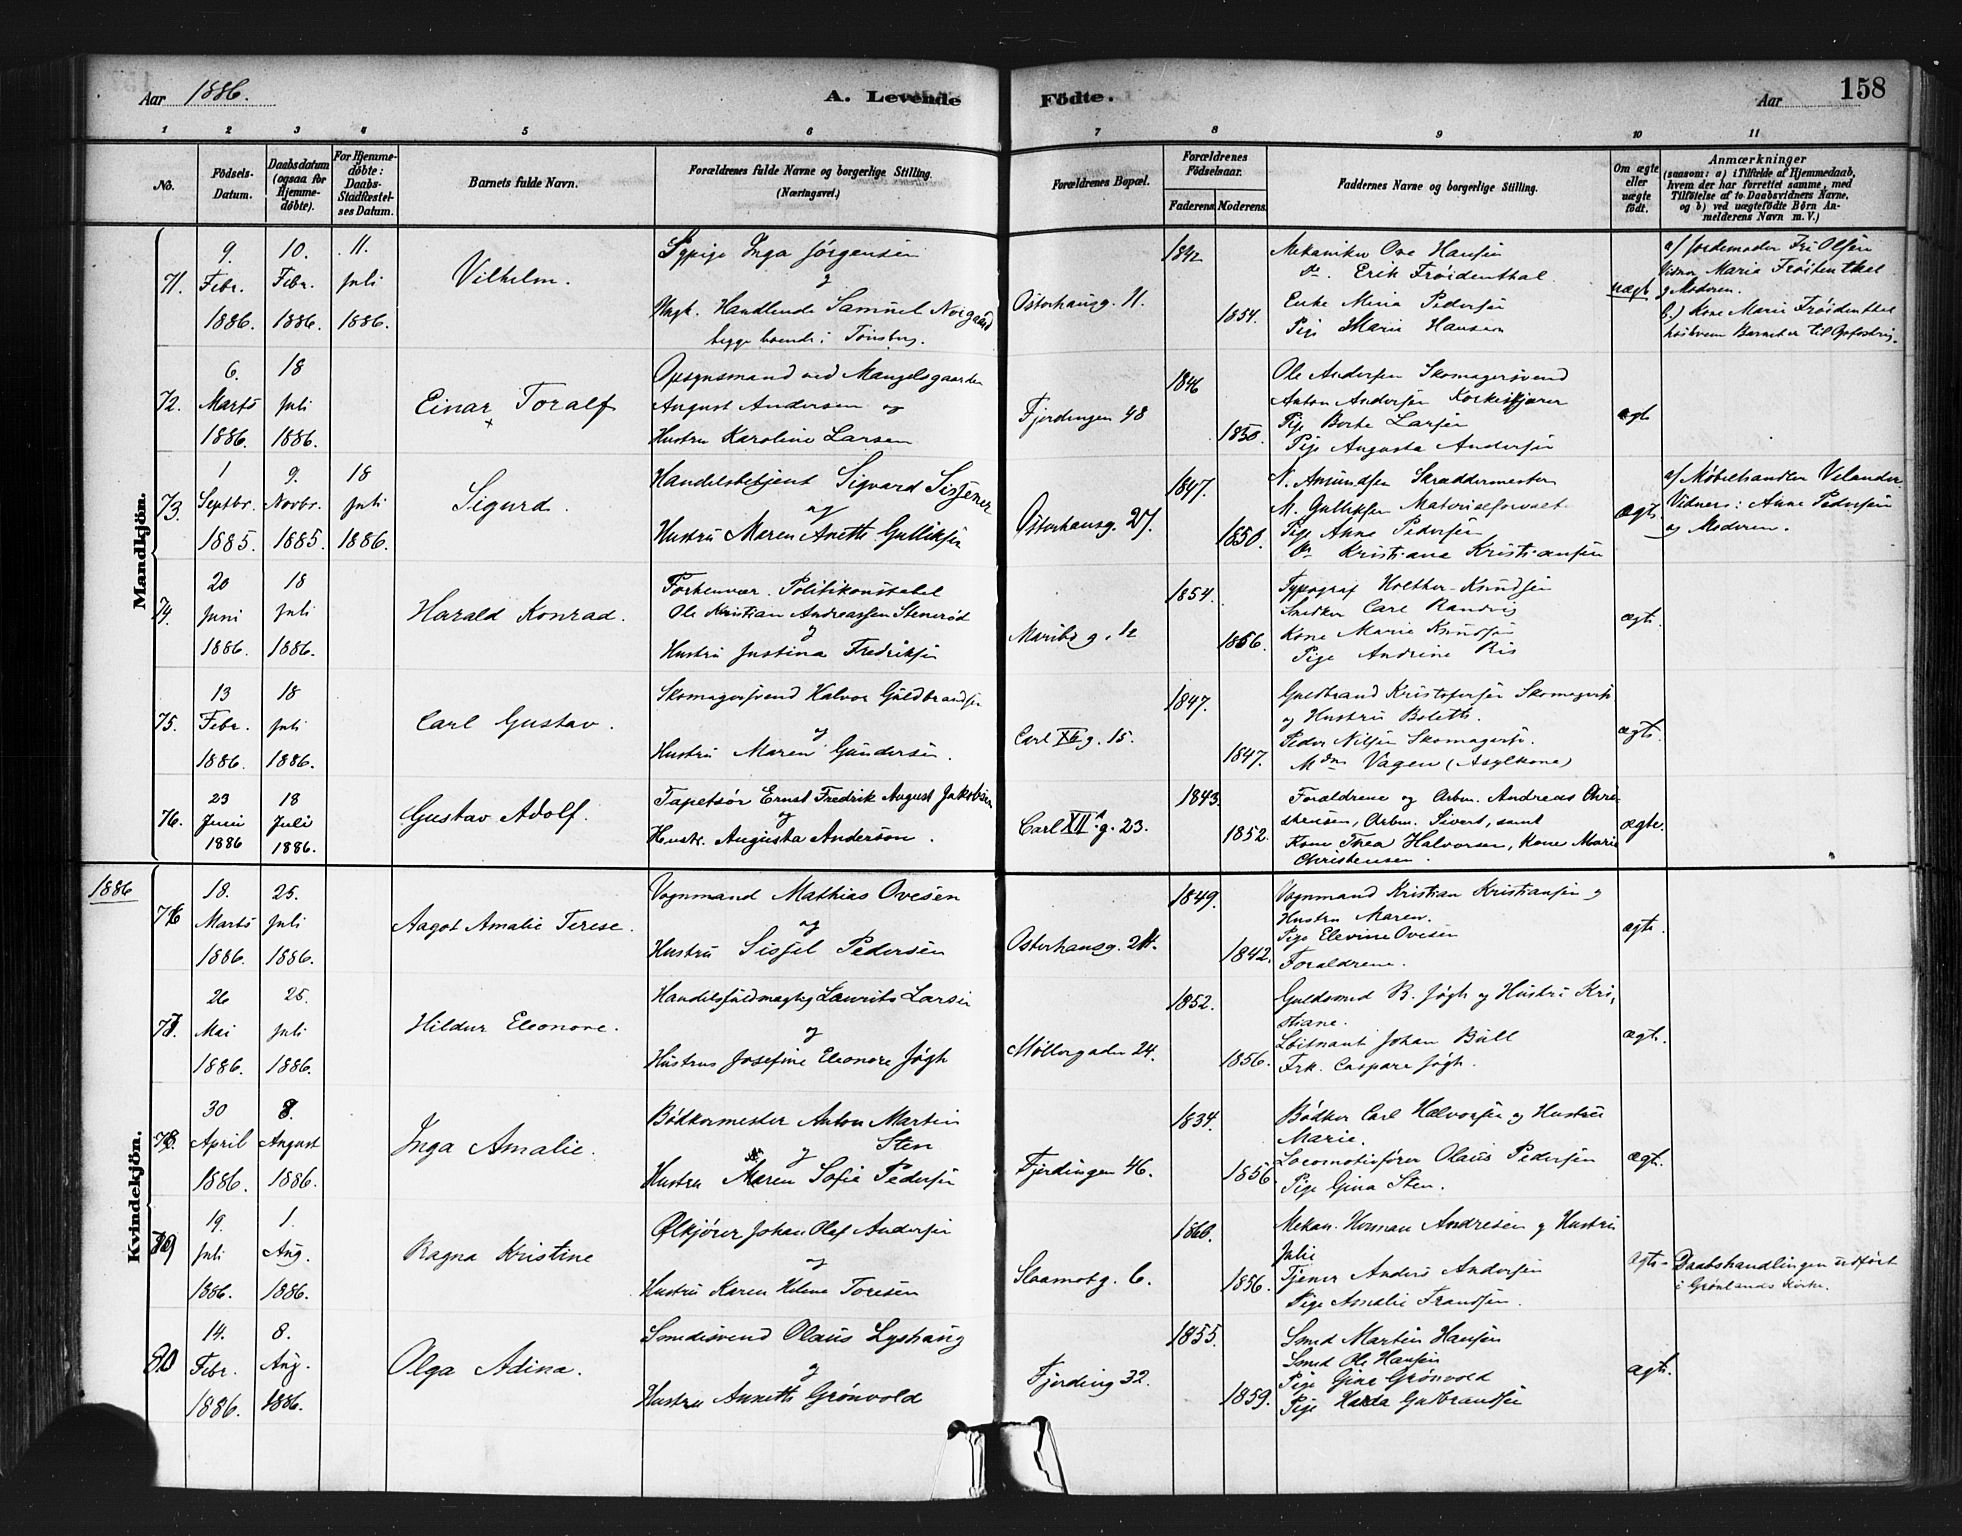 Aar 1886.
A. Levende Fødte.
Aar
158
1 2 3 4 5 6 7 8 9 10 11
No.
Fødsels-Datum.
Daabsdatum (ogsaa for Hjemme-døbte).
For Hjemme-døbte: Daabs-Stadfæstel-ses Datum.
Barnets fulde Navn.
Forældrenes fulde Navne og borgerlige Stilling. (Næringsvei.)
Forældrenes Bopæl.
Forældrenes Fødselsaar.
Faderens. Moderens.
Faddernes Navne og borgerlige Stilling.
Om ægte eller uægte født.
Anmærkninger
(saasom: a) i Tilfælde af Hjemmedaab,
hvem der har forrettet samme, med
Tilføielse af to Daabsvidners Navne,
og b) ved uægtefødte Børn An-
melderens Navn m. V.)
Mandkjön.
71.
9. Febr. 1886.
10. Febr. 1886.
11. Juli 1886.
Vilhelm.
Sypige Inga Jørgensen
og
Handlende Samuel Norgaard
begge boende i Tønsberg.
Osterhausg. 11.
1842
1854.
Mekaniker Ove Hansen
Do. Erik Frøidenthal
Enke Mina Pedersen
Pige Marie Hansen
uægt
a) Jordemoder Olsen
Vidner Maria Frøidenthal
og Moderen.
b.) Kone Marie Frøidenthal
72.
6. Marts 1886.
18 Juli 1886.
Einar Toralf
Opsynsmand ved Mangelsgaarden
August Andersen og
Hustru Karoline Larsen
Fjerdingen 48
1846
1850.
Ole Andersen Skomagersvend
Anton Andersen Korkeskjærer
Pige Berte Larsen
Pige Augusta Andersen
ægte
73.
1 Septbr. 1885.
9. Novbr. 1885.
18 Juli 1886.
Sigurd.
Handelsbetjent Sigvard Sissener
og
Hustru Maren Anette Gulliksen
Osterhausg. 27.
1847.
1850.
N. Amundsen Skræddermester
M. Gulliksen Materialforvalt.
Pige Anna Pedersen
Do Kristiane Kristiansen
ægte
a) Møbelhandler Velander.
Vidner: Anne Pedersen
og Moderen.
74.
20 Juni 1886.
18 Juli 1886.
Harald Konrad.
Forhenvær. Politikonstabel
Ole Kristian Andreassen Stenerød
og
Hustru Justina Fredriksen
Maribog. 12
1854.
1856.
Typograf Holther-Knudsen
Snedker Carl Randvig
Kone Marie Knudsen
Pige Andrine Ris
ægte.
75.
13 Febr. 1886.
18 Juli 1886.
Carl Gustav.
Skomagersvend Halvor Guldbrandsen
og
Hustru Maren Gundersen.
Carl XII g. 15.
1847.
1847.
Guldbrand Kristofersen Skomagersv.
og Hustru Bolette.
Peder Nilsen Skomagersv.
Mdm Vagen (Asylkone)
ægte.
76.
23 Juni 1886
18 Juli 1886.
Gustav Adolf.
Tapetsør Ernst Fredrik August Jakobsen
og
Hustr. Augusta Anderson.
Carl XIIs g. 23.
1843.
1852.
Forældrene og Arbm. Andreas Chri-
stensen, Arbm. Sivert, samt
Kone Thea Halvorsen, Kone Marie
Christensen.
ægte.
1886
Kvindekjön.
76
18. Marts 1886.
25. Juli 1886.
Aagot Amalie Terese.
Vognmand Mathias Ovesen
og
Hustru Sissel Pedersen
Osterhausg. 21.
1849.
1842.
Vognmand Kristian Kristiansen og
Hustru Maren.
Pige Elevine Ovesen
Forældrene.
ægte.
77.
26 Mai 1886.
25. Juli 1886.
Hildur Eleonore.
Handelsfuldmægtig Laurits Larsen
og
Hustru Josefine Eleonore Jøgh
Møllergaden 24.
1852.
1856.
Guldsmed B. Jøgh og Hustru Kri-
stiane.
Løitnant Johan Bull
Frk. Caspara Jøgh.
ægte.
78.
30 April 1886.
8. August 1886.
Inga Amalie.
Bødkermester Anton Martin
og Sten
Hustru Maren Sofie Pedersen
Fjerdingen 46.
1834.
1856
Bødker Carl Halvorsen og Hustru
Marie.
Locomotivfører Olaus Pedersen
Pige Gina Sten.
ægte.
79
19. Juli 1886.
1. Aug. 1886.
Ragna Kristine
Ølkjører Johan Olaf Andersen
og
Hustru Karen Helene Toresen
Slaamotg. 6.
1860.
1856.
Mekan. Herman Andresen og Hustru
Julie
Tjener Anders Andersen
Pige Amalie Frandsen.
ægte.
Daabshandlingen udført
i Grønlands Kirke.
80
14. Febr. 1886.
8. Aug. 1886.
Olga Adina.
Smedesvend Olaus Lyshaug
og
Hustru Annette Grønvold
Fjerding 32.
1855.
1859.
Smed Martin Hansen
Smed Ole Hansen
Pige Gina Grønvold
Pige Hulda Gulbrandsen
ægte.